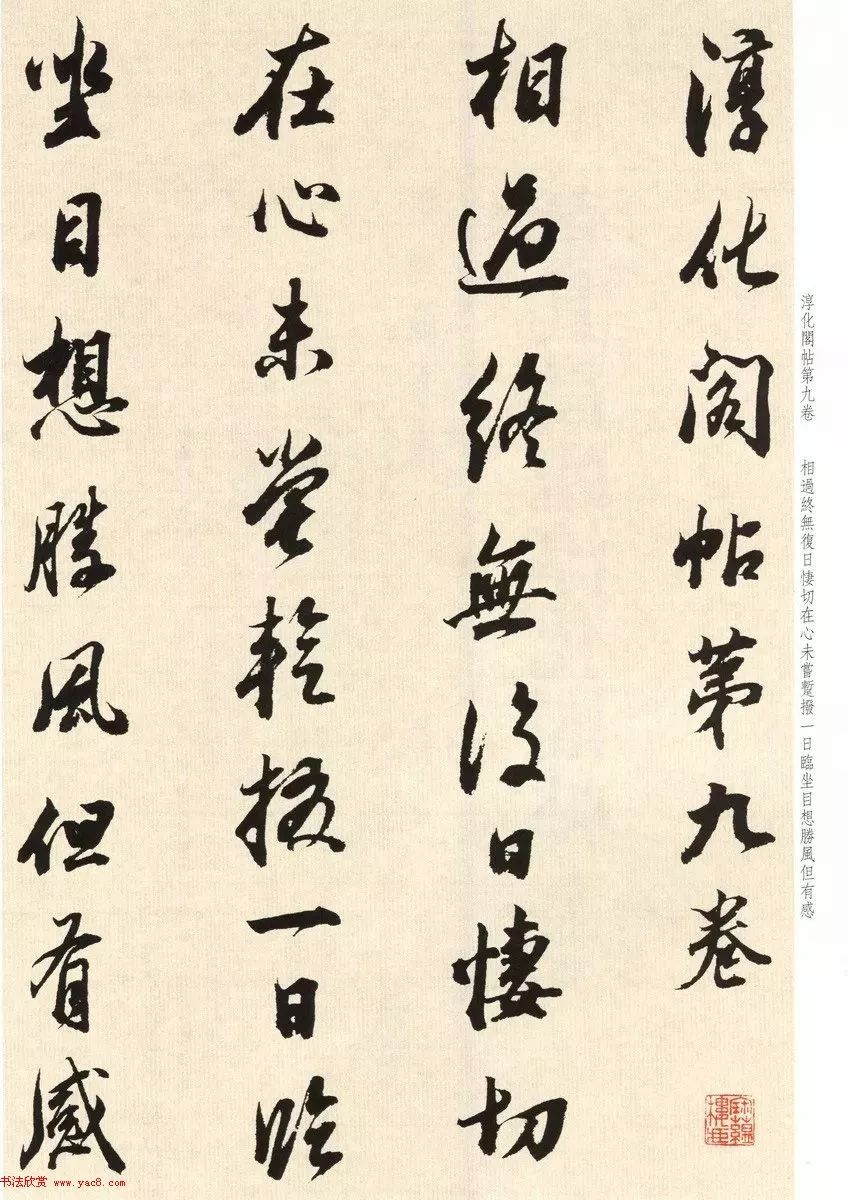 淳化阁帖第九卷
相過終無復日悽切
在心未嘗蹔撥一日臨
坐目想勝風但有感
淳化閣帖第九卷 相過終無復日悽切在心未嘗蹔撥一日臨坐目想勝風但有感
书法欣赏 www.yac8.com